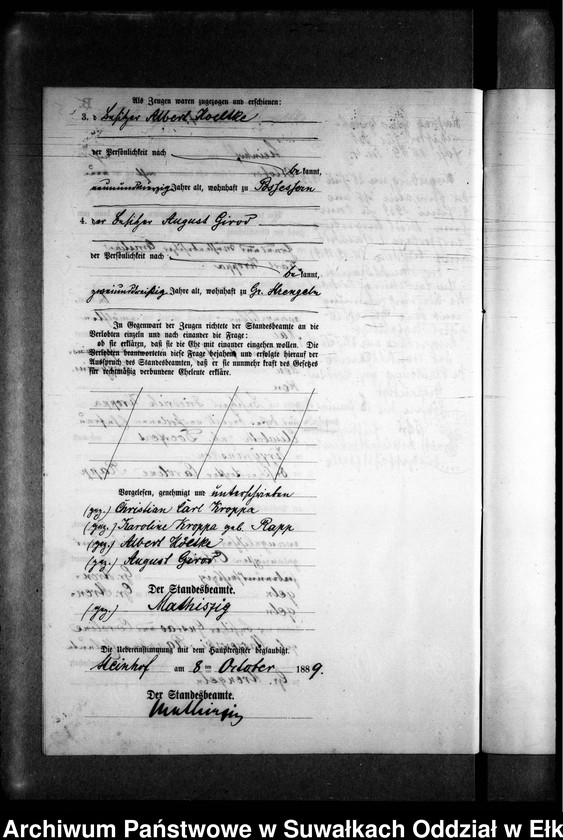 Als Zeugen waren zugezogen und erschienen:
3. d Besitzer Albert Koeltke
der Persönlichkeit nach
bekannt,
neunundvierzig Jahre alt, wohnhaft zu Possessern
4. der Besitzer August Girod
der Persönlichkeit nach
bekannt,
zweiunddreißig Jahre alt, wohnhaft zu Gr.
In Gegenwart der Zeugen richtete der Standesbeamte an die
Verlobten einzeln und nach einander die Frage:
ob sie erklären, daß sie die Ehe mit einander eingehen wollen. Die
Verlobten beantworteten diese Frage bejahend und erfolgte hierauf der
Ausspruch des Standesbeamten, daß er sie nunmehr kraft des Gesetzes
für rechtmäßig verbundene Eheleute erkläre.
Vorgelesen, genehmigt und unterschrieben
(gez.) Christian Carl Kroppa
(gez.) Karoline Kroppa geb. Rapp
(gez.) Albert Költke
(gez.) August Girod
Der Standesbeamte.
(gez.) Mathiszig
Die Uebereinstimmung mit dem Hauptregister beglaubigt.
Steinhof am 8ten October 1889.
Der Standesbeamte.
Mathiszig
Archiwum Państwowe w Suwałkach Oddział w Ełk